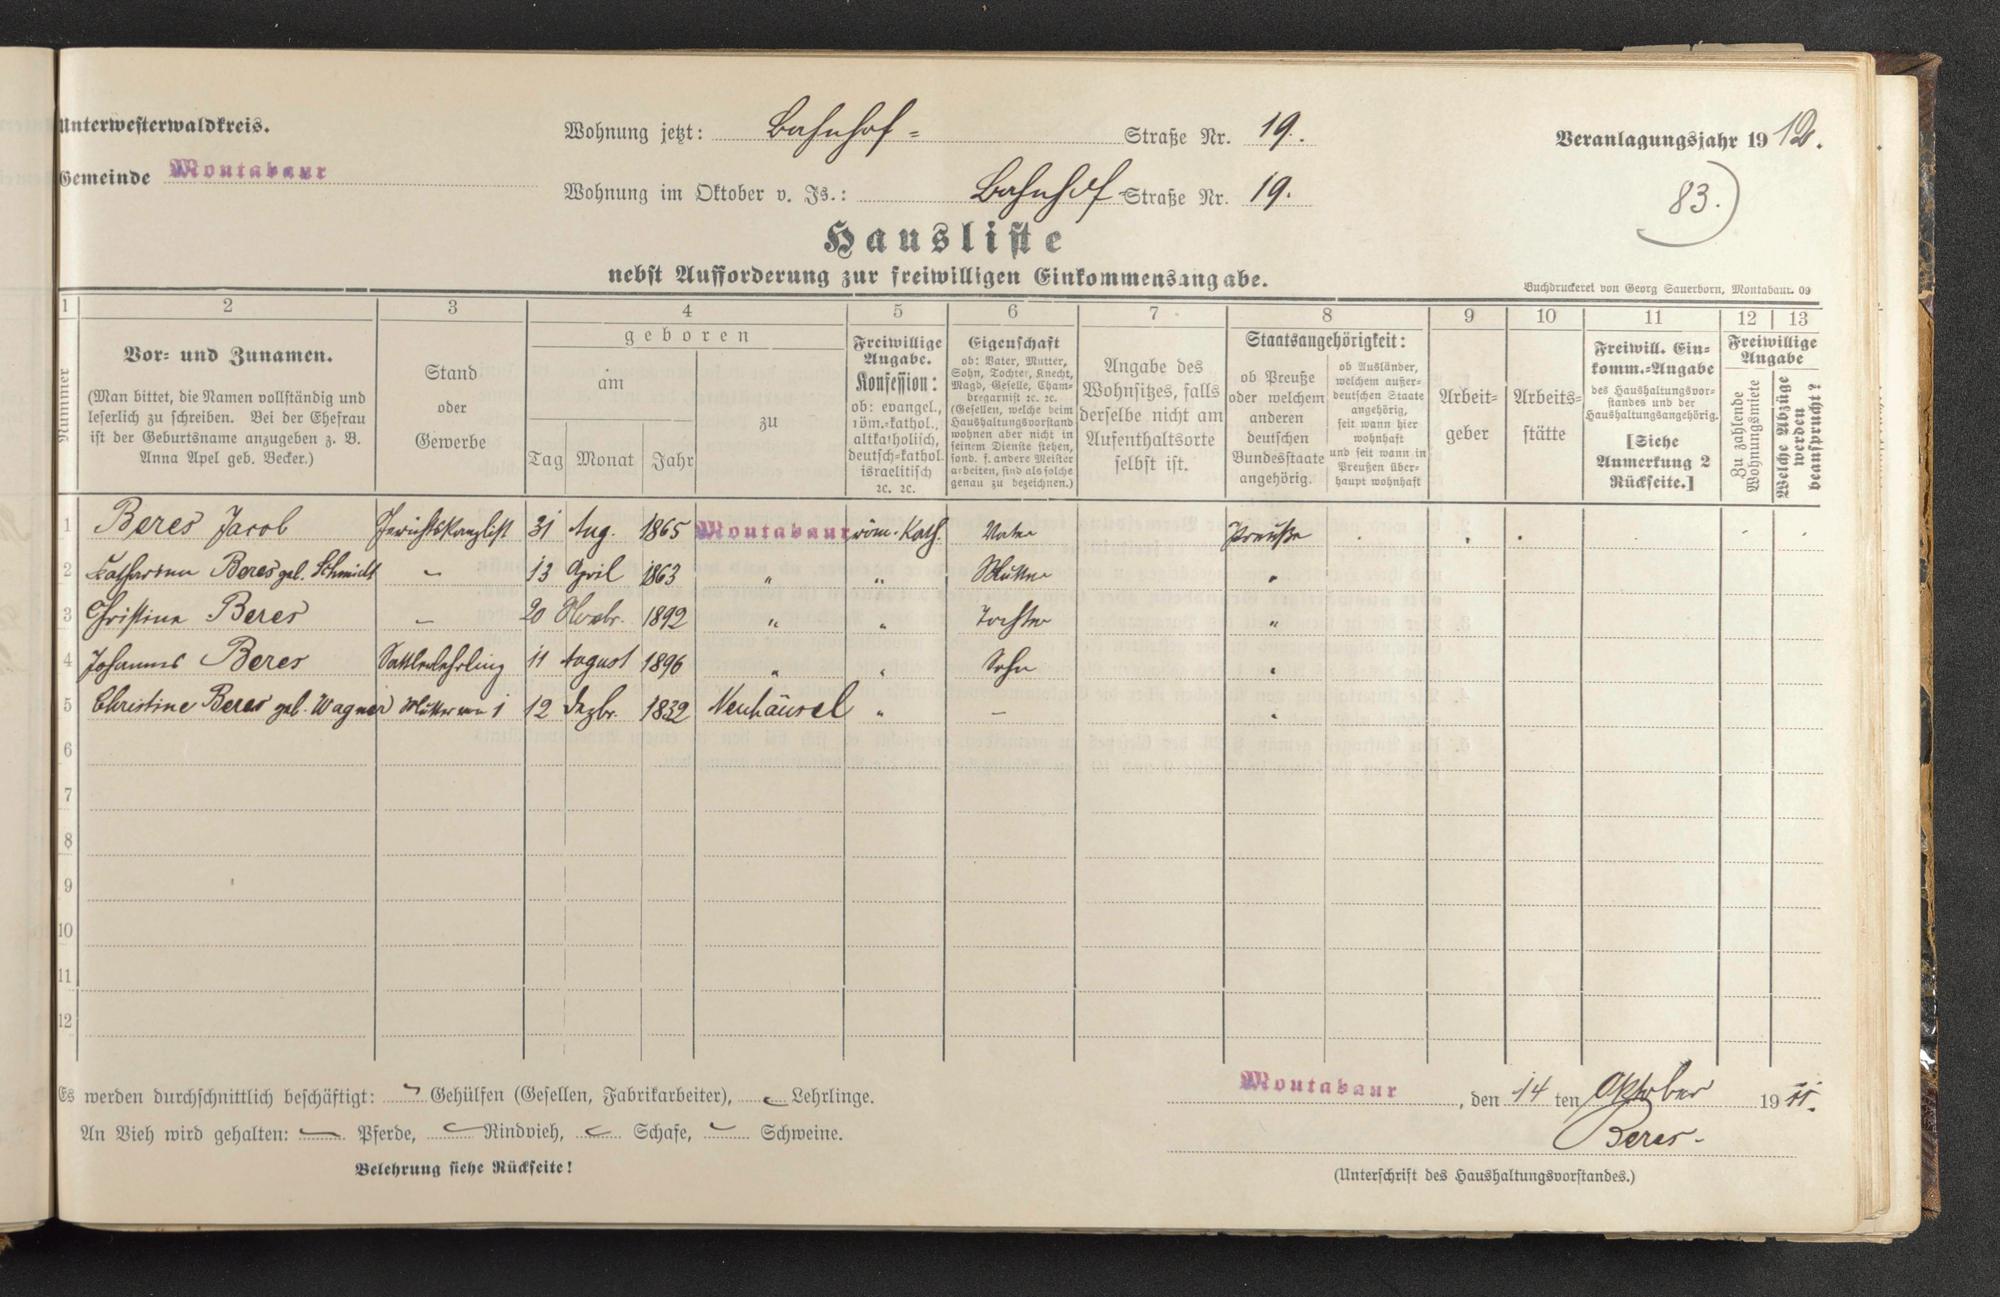 Unterwesterwaldkreis.
Gemeinde Montabaur
Wohnung jetzt: Bahnhof- Straße Nr. 19.
Wohnung im Oktober v. Js.: Bahnhof- Straße Nr. 19.
Veranlagungsjahr 1912.
83.)
Hausliste
nebst Aufforderung zur freiwilligen Einkommensangabe.
Buchdruckerei von Georg Sauerborn, Montabaur. 09
1 2 3 4 5 6 7 8 9 10 11 12 13
Nummer
Vor- und Zunamen.
(Man bittet, die Namen vollständig und
leserlich zu schreiben. Bei der Ehefrau
ist der Geburtsname anzugeben z. B.
Anna Apel geb. Becker.)
Stand
oder
Gewerbe
geboren
am
Tag Monat Jahr
zu
Freiwillige
Angabe.
Konfession:
ob: evangel.,
röm.-kathol.,
altkatholisch,
deutsch-kathol.
israelitisch
ꝛc. ꝛc.
Eigenschaft
ob: Vater, Mutter,
Sohn, Tochter, Knecht,
Magd, Geselle, Cham-
bregarnist ꝛc. ꝛc.
(Gesellen, welche beim
Haushaltungsvorstand
wohnen aber nicht in
seinem Dienste stehen,
sond. f. andere Meister
arbeiten, sind als solche
genau zu bezeichnen.)
Angabe des
Wohnsitzes, falls
derselbe nicht am
Aufenthaltsorte
selbst ist.
Staatsangehörigkeit:
ob Preuße
oder welchem
anderen
deutschen
Bundesstaate
angehörig.
ob Ausländer,
welchem außer-
deutschen Staate
angehörig,
seit wann hier
wohnhaft
und seit wann in
Preußen über-
haupt wohnhaft
Arbeit-
geber
Arbeits-
stätte
Freiwill. Ein-
komm.-Angabe
des Haushaltungsvor-
standes und der
Haushaltungsangehörig.
[Siehe
Anmerkung 2
Rückseite.]
Freiwillige
Angabe
Zu zahlende
Wohnungsmiete
Welche Abzüge
werden
beansprucht?
1 Beres Jacob Gerichtskanzlist 31 Aug. 1865 Montabaur röm. Kath. Vater Preuße
2 Katharina Beres geb. Schmidt – 13 April 1863 " " Mutter "
3 Christina Beres – 20 Novbr. 1892 " " Tochter "
4 Johannes Beres Sattlerlehrling 11 August 1896 " " Sohn "
5 Christine Beres geb. Wagner Mutter von 1 12 Dezbr. 1832 Neuhäusel " – "
6
7
8
9
10
11
12
Es werden durchschnittlich beschäftigt: – Gehülfen (Gesellen, Fabrikarbeiter), – Lehrlinge.
An Vieh wird gehalten: – Pferde, – Rindvieh, – Schafe, – Schweine.
Belehrung siehe Rückseite!
Montabaur, den 14 ten Oktober 1911.
Beres.
(Unterschrift des Haushaltungsvorstandes.)